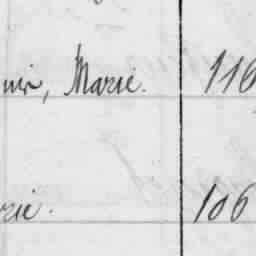 nir, Marie. 116
rie. 106